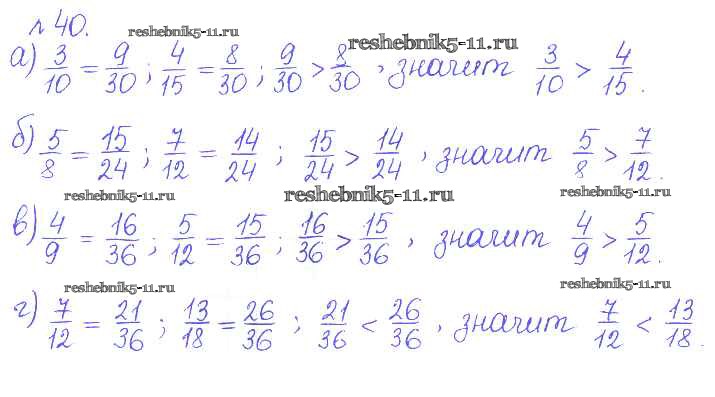 № 40. reshebnik5-11.ru
reshebnik5-11.ru
а) 3/10 = 9/30 ; 4/15 = 8/30 ; 9/30 > 8/30 , значит 3/10 > 4/15 .
б) 5/8 = 15/24 ; 7/12 = 14/24 ; 15/24 > 14/24 , значит 5/8 > 7/12 .
reshebnik5-11.ru reshebnik5-11.ru reshebnik5-11.ru
в) 4/9 = 16/36 ; 5/12 = 15/36 ; 16/36 > 15/36 , значит 4/9 > 5/12 .
reshebnik5-11.ru reshebnik5-11.ru
г) 7/12 = 21/36 ; 13/18 = 26/36 ; 21/36 < 26/36 , значит 7/12 < 13/18 .